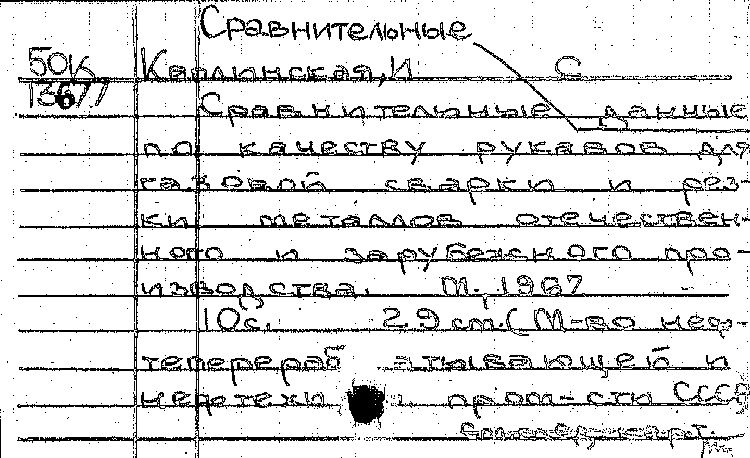 Сравнительные
50К Каплинская, И С
13677 Сравнительные данные
по качеству рукавов для
газовой сварки и рез-
ки металлов отечествен-
ного и зарубежного про-
изводства. М., 1967
10с. 29 см. (М-во неф-
теперераб атывающей и
нефтехи пром-сти СССР